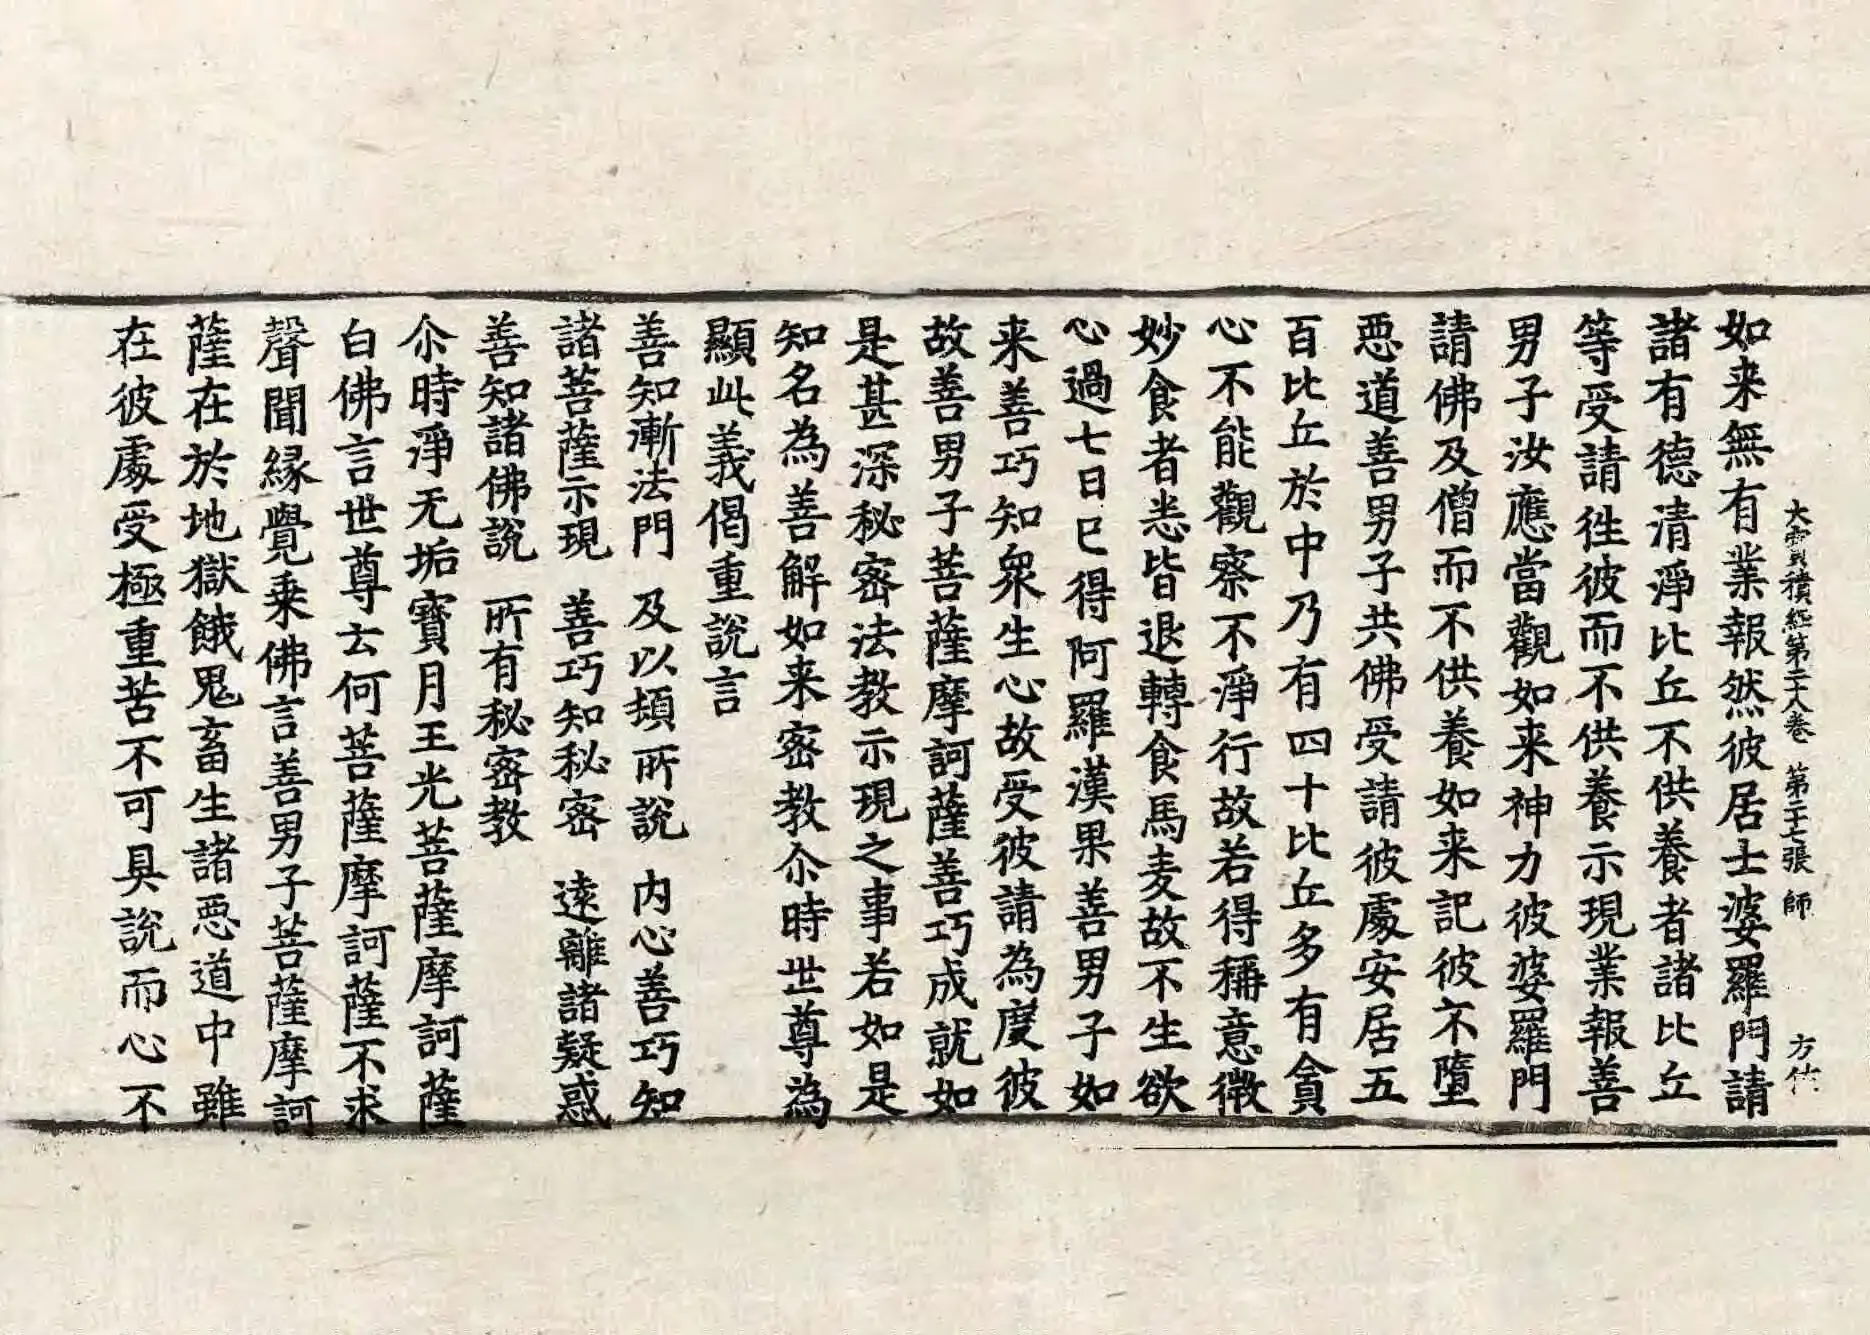 大寶積經第二十八卷 第二十七張 師 方佐
如来無有業報然彼居士婆羅門請
諸有德清淨比丘不供養者諸比丘
等受請徃彼而不供養示現業報善
男子汝應當觀如来神力彼婆羅門
請佛及僧而不供養如来記彼不墮
惡道善男子共佛受請彼處安居五
百比丘於中乃有四十比丘多有貪
心不能觀察不淨行故若得稱意微
妙食者悉皆退轉食馬麦故不生欲
心過七日已得阿羅漢果善男子如
来善巧知衆生心故受彼請為度彼
故善男子菩薩摩訶薩善巧成就如
是甚深秘密法教示現之事若如是
知名為善解如来密教尒時世尊為
顯此義偈重說言
善知漸法門 及以頓所說 内心善巧知
諸菩薩示現 善巧知秘密 遠離諸疑惑
善知諸佛說 所有秘密教
尒時淨无垢寶月王光菩薩摩訶薩
白佛言世尊云何菩薩摩訶薩不求
聲聞緣覺乗佛言善男子菩薩摩訶
薩在於地獄餓鬼畜生諸惡道中雖
在彼處受極重苦不可具說而心不